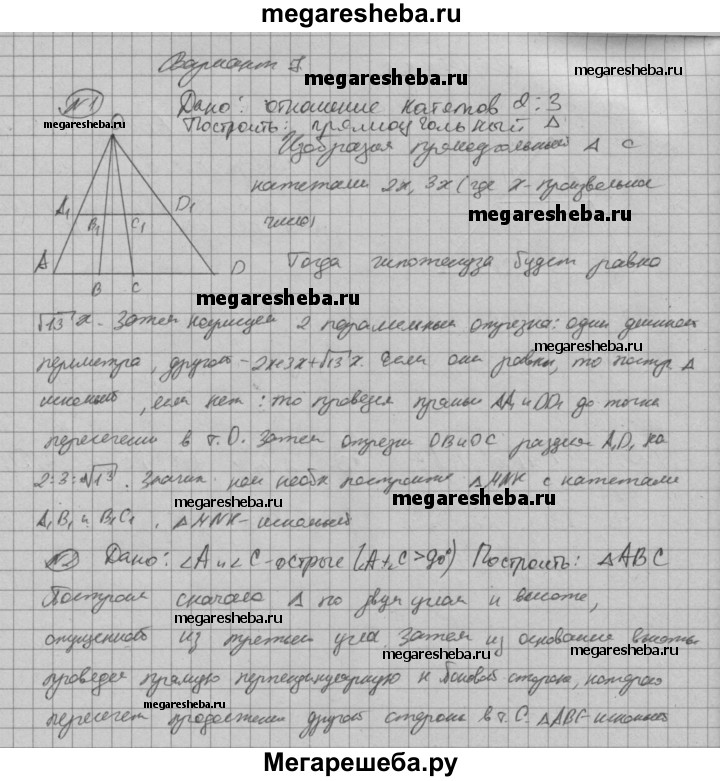 megaresheba.ru
Вариант 7
megaresheba.ru
megaresheba.ru
№1
megaresheba.ru
Дано: отношение катетов 2:3
Построить: прямоугольный Δ
O
Изобразим прямоугольный Δ с
катетами 2x, 3x (где x - произвольное
число)
megaresheba.ru
A₁ B₁ C₁ D₁
A B C D
Тогда гипотенуза будет равна
megaresheba.ru
√13 x. Затем нарисуем 2 параллельных отрезка: один длиной
megaresheba.ru
периметра, другой - 2x+3x+√13 x. Если они равны, то постр. Δ
искомый, если нет: то проведем прямые AA₁ и DD₁ до точки
пересечения в т. O. Затем отрезки OB и OC разделят A₁D₁ на
2:3:√13. Значит нам необх построить Δ MNK с катетами
megaresheba.ru
megaresheba.ru
A₁B₁ и B₁C₁, Δ MNK - искомый
№2 Дано: ∠A и ∠C - острые (∠A+∠C>90°) Построить: Δ ABC
Построим сначала Δ по двум углам и высоте,
megaresheba.ru
опущенной из третьего угла. Затем из основания высоты
megaresheba.ru
megaresheba.ru
проведем прямую перпендикулярную к боковой стороне, которая
megaresheba.ru
пересечет продолжение другой стороны в т. C. Δ ABC - искомый
Мегарешеба.ру